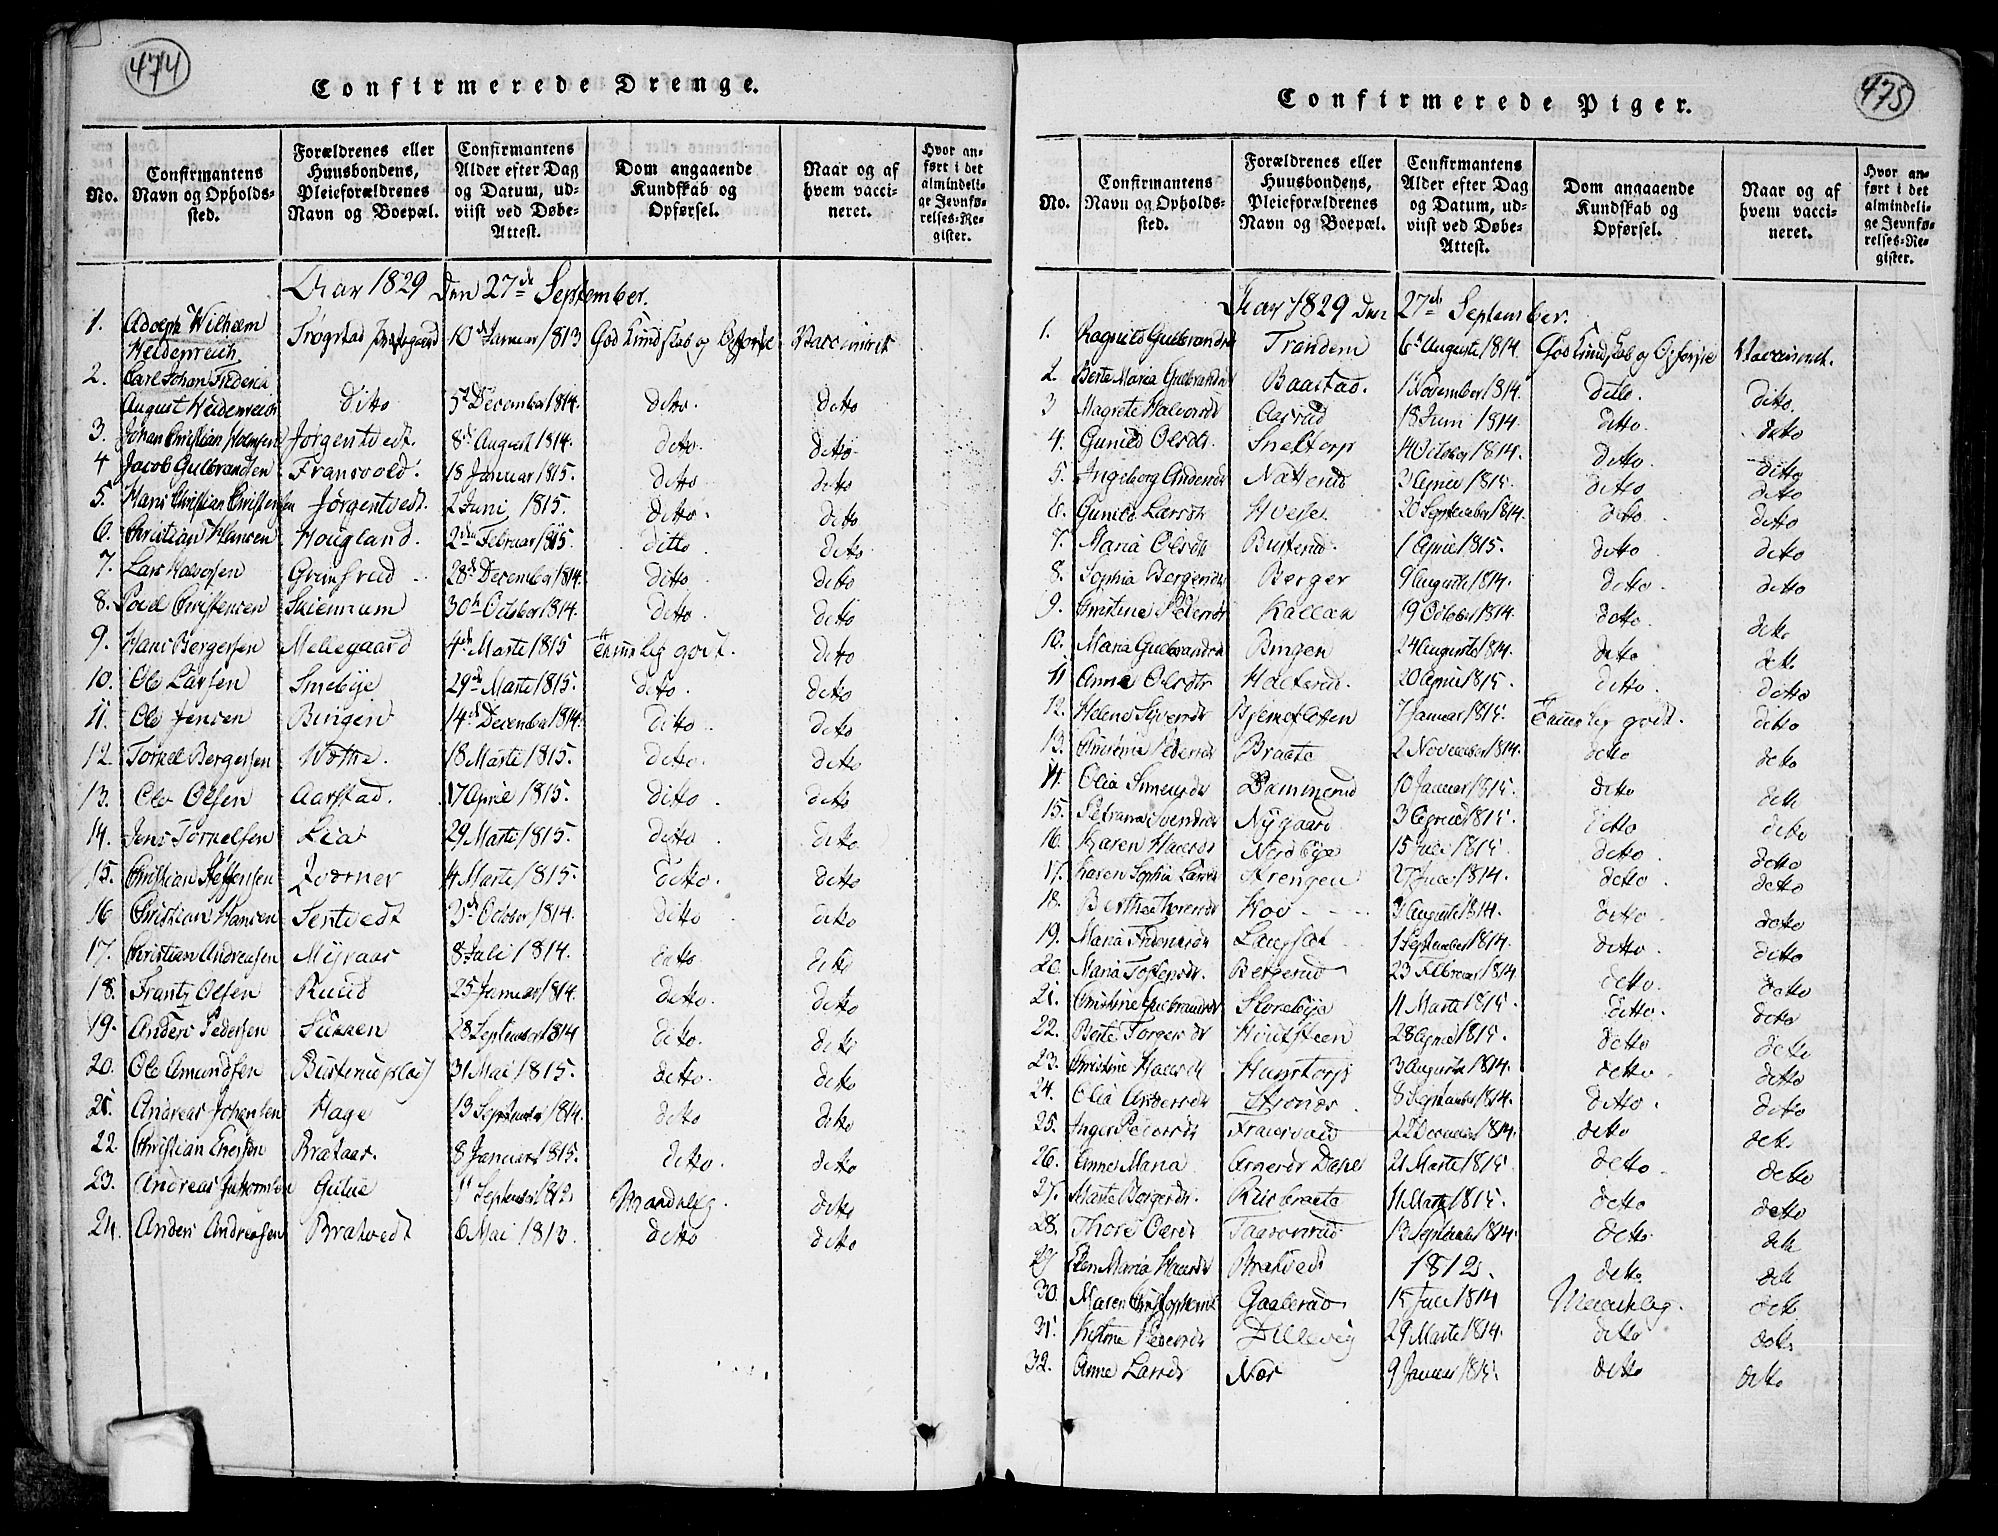 474
Confirmerede Drenge.
No.
Confirmantens Navn og Opholds-sted.
Forældrenes eller Huusbondens, Pleieforældrenes Navn og Boepæl.
Confirmantens Alder efter Dag og Datum, ud-viist ved Døbe-Attest.
Dom angaaende Kundskab og Opførsel.
Naar og af hvem vacci-neret.
Hvor an-ført i det almindeli-ge Jevnfø-relses-Re-gister.
Aar 1829 den 27de September.
1. Adolph Wilhelm Heidenreich Trøgstad 10de Januar 1813 God Kundskab og Opførsel Vaccineret
2. Carl Johan August Heidenreich ditto 5te December 1814. ditto. ditto
3. Johan Christian Jørgentvedt. 8de August 1814. ditto. ditto.
4 Jacob Gulbrandsen Fransvold. 18 Januar 1815. ditto ditto
5. Hans Christian Christensen Jørgentvedt. 2 Juni 1815. ditto. ditto
6. Christian Hansen Hougland. 2den Februar 1815. ditto ditto
7. Lars Halvorsen Grimsrud 28de December 1814. ditto ditto
8. Christensen Skiennum 30te October 1814. ditto. ditto
9. Hans Bergersen Mellegaard 4de Marts 1815 Temmelig godt. ditto
10. Ole Larsen Smebye 29de Marts 1815. ditto. ditto
11. Ole Jensen Bingen 14de December 1814. ditto. ditto
12. Torkel Bergersen 18 Marts 1815. ditto. ditto
13. Ole Olsen Aarstad. 17 April 1815. ditto. ditto
14. Jens Torkelsen Lia 29 Marts 1815. ditto ditto.
15. Christian Steffensen 4 Marts 1815. ditto. ditto
16 Christian Hansen Sentvedt October 1814. ditto. ditto
17. Christian Andreasen Myraas 8 Juli 1814. ditto. ditto
18. Frantz Olsen Ruud 25 Januar 1814. ditto. ditto
19. Anders Pedersen 28 September 1814 ditto. ditto
20. Ole Amundsen 31 Mai 1815. ditto. ditto
21. Andreas Johansen Hage 13 September 1814. ditto ditto
22. Christian Iversen Brataas. 8 Januar 1815. ditto. ditto
23. Andreas Gulue September 1812. Maadelig. ditto
24. Anders Andreasen Bratvedt 6 Mai 1813. ditto ditto
475
Confirmerede Piger.
No.
Confirmantens Navn og Opholds-sted.
Forældrenes eller Huusbondens, Pleieforældrenes Navn og Boepæl.
Confirmantens Alder efter Dag og Datum, ud-viist ved Døbe-Attest.
Dom angaaende Kundskab og Opførsel.
Naar og af hvem vacci-neret.
Hvor an-ført i det almindeli-ge Jevnfø-relses-Re-gister.
Aar 1829 den 27de September.
1. Ragnild Gulbrandsd Trandem 6te Auguste 1814. God Kundskab og Opførsel Vaccineret.
2. Berte Maria Gulbrandsd Baastad. 1 November 1814. ditto. ditto.
3 Magrete Halvorsd Aasrud 18 Juni 1814. ditto. ditto
4. Gunild Olsdtr. Skeltorp 14 October 1814. ditto. ditto
5. Ingeborg Andersd Natterud 3 April 1815. ditto ditto
6. Gunild Larsdtr 20 September 1814. ditto. ditto
7. Maria Olsdtr Busterud. 1 April 1815. ditto. ditto
8. Sophia Bergersdtr Berger 9 Auguste 1814. ditto. ditto
9. Christine Pedersdtr Kallak 19 October 1814. ditto ditto
10. Maria Gulbrandsd Bingen 24 Auguste 1814. ditto ditto
11 Anne Olsdtr Holterud. 20 April 1815. ditto. ditto
12. Helene Syversdtr 7 Januar 1815. Temmelig godt. ditto
13. Pedersdtr Braate 2 November 1814. ditto ditto
14. Olia Simensdtr Dammerud 10 Januar 1815. ditto ditto
15. Petrana Svendsd Nygaard 3 April 1815. ditto ditto
16. Karen Nordbye 15 Juli 1815. ditto. ditto
17. Karen Sophia Larsd Strengen 27 Juli 1814. ditto ditto
18. Berthe Thoresdtr Hoo 3 Auguste 1814. ditto. ditto
19. Maria 1 September 1814. ditto ditto
20. Maria Bergerud 23 Februar 1814 ditto. ditto
21. Christine Gulbrandsd Storebye 11 Marts 1815. ditto. ditto
22. Berte Torgersdtr Houfsteen 28 April 1815. ditto ditto
23. Christine Hanstorp 3 Auguste 1814. ditto. ditto
24. Olia Andersdtr 8 September 1814. ditto. ditto
25. Inger Pedersdtr 22 December 1814. ditto ditto
26. Anne Maria 21 Marts 1815. ditto. ditto
27. Marte Borgersdtr. Rusbraate 11 Marts 1815. ditto ditto
28. Thore Olsdtr 13 September 1814. ditto ditto
29 Ellen Maria Bratvedt 1812. ditto. ditto
30. Maren Christophersd Gaalerud 15 Juli 1814 Maadelig. ditto
31. Pedersdtr Dillevig 29 Marts 1814. ditto ditto
32. Anne Larsdtr Nor 9 Januar 1815. ditto ditto